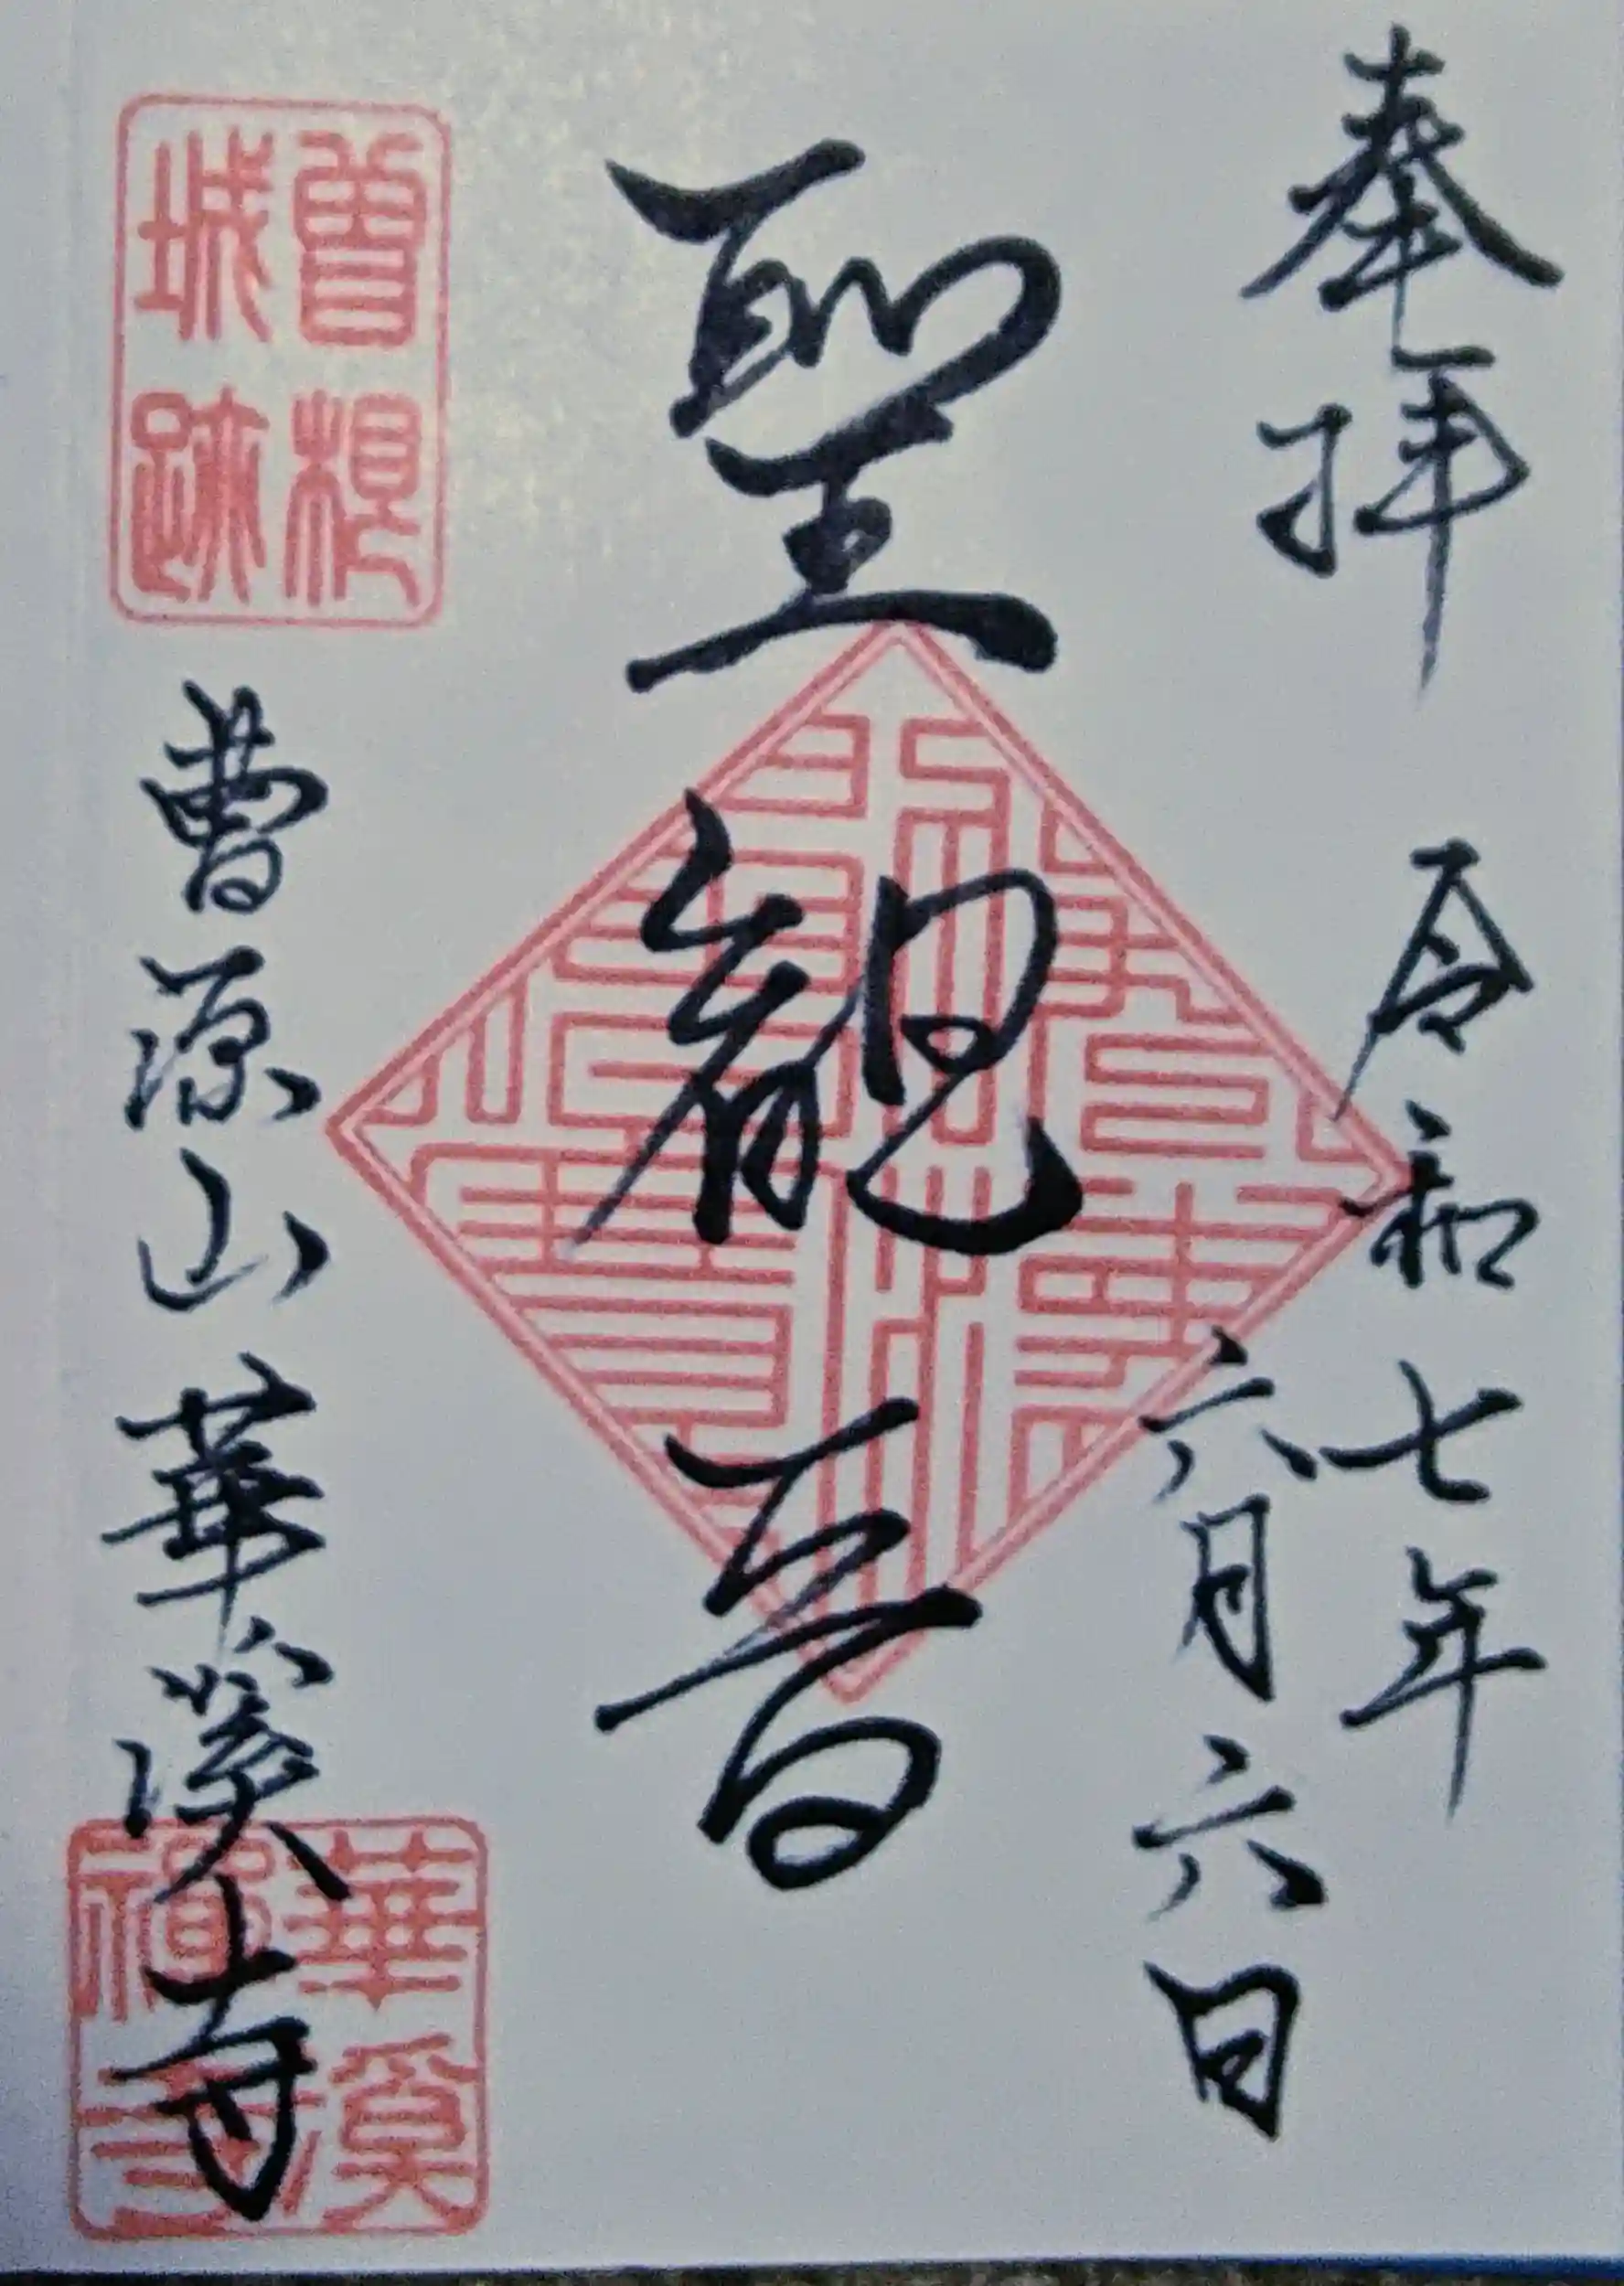 奉拝
令和七年
六月六日
聖観音
曽根
城跡
曹源山華溪寺
華溪
禅寺